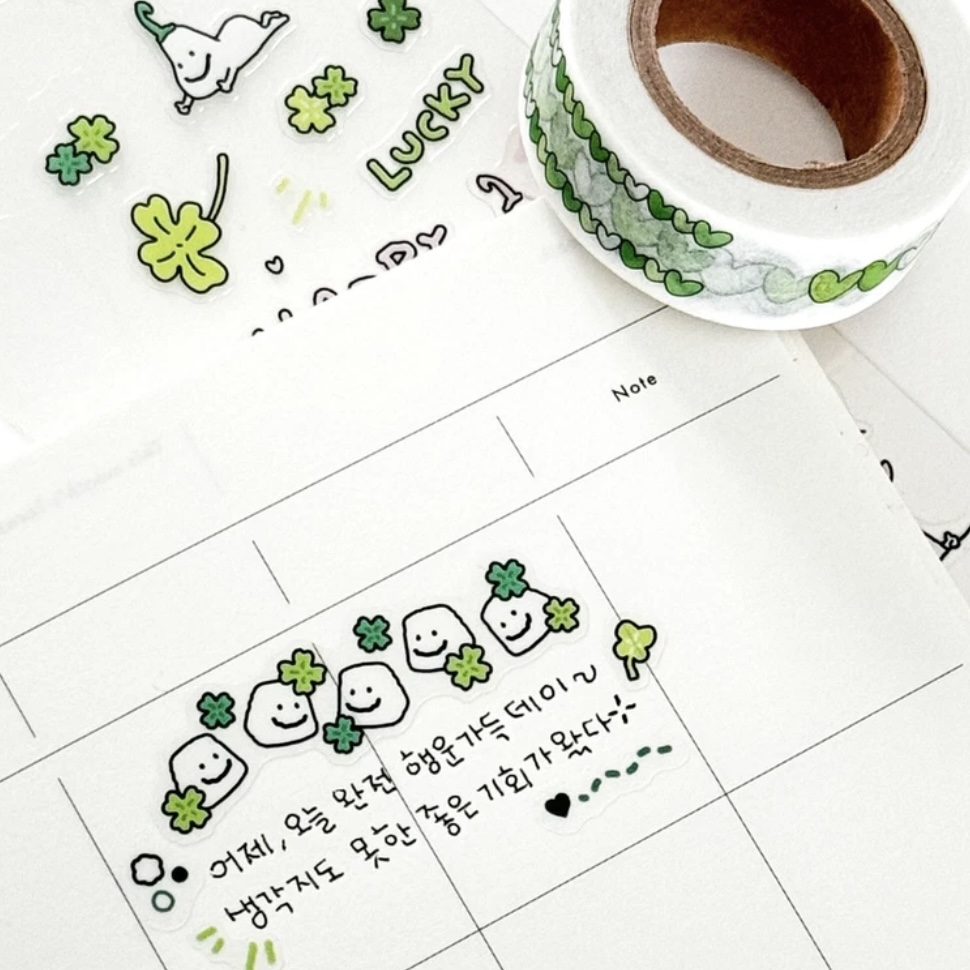 LUCKY
Note
어제, 오늘 완전 행운가득데이~
생각지도 못한 좋은 기회가 왔다